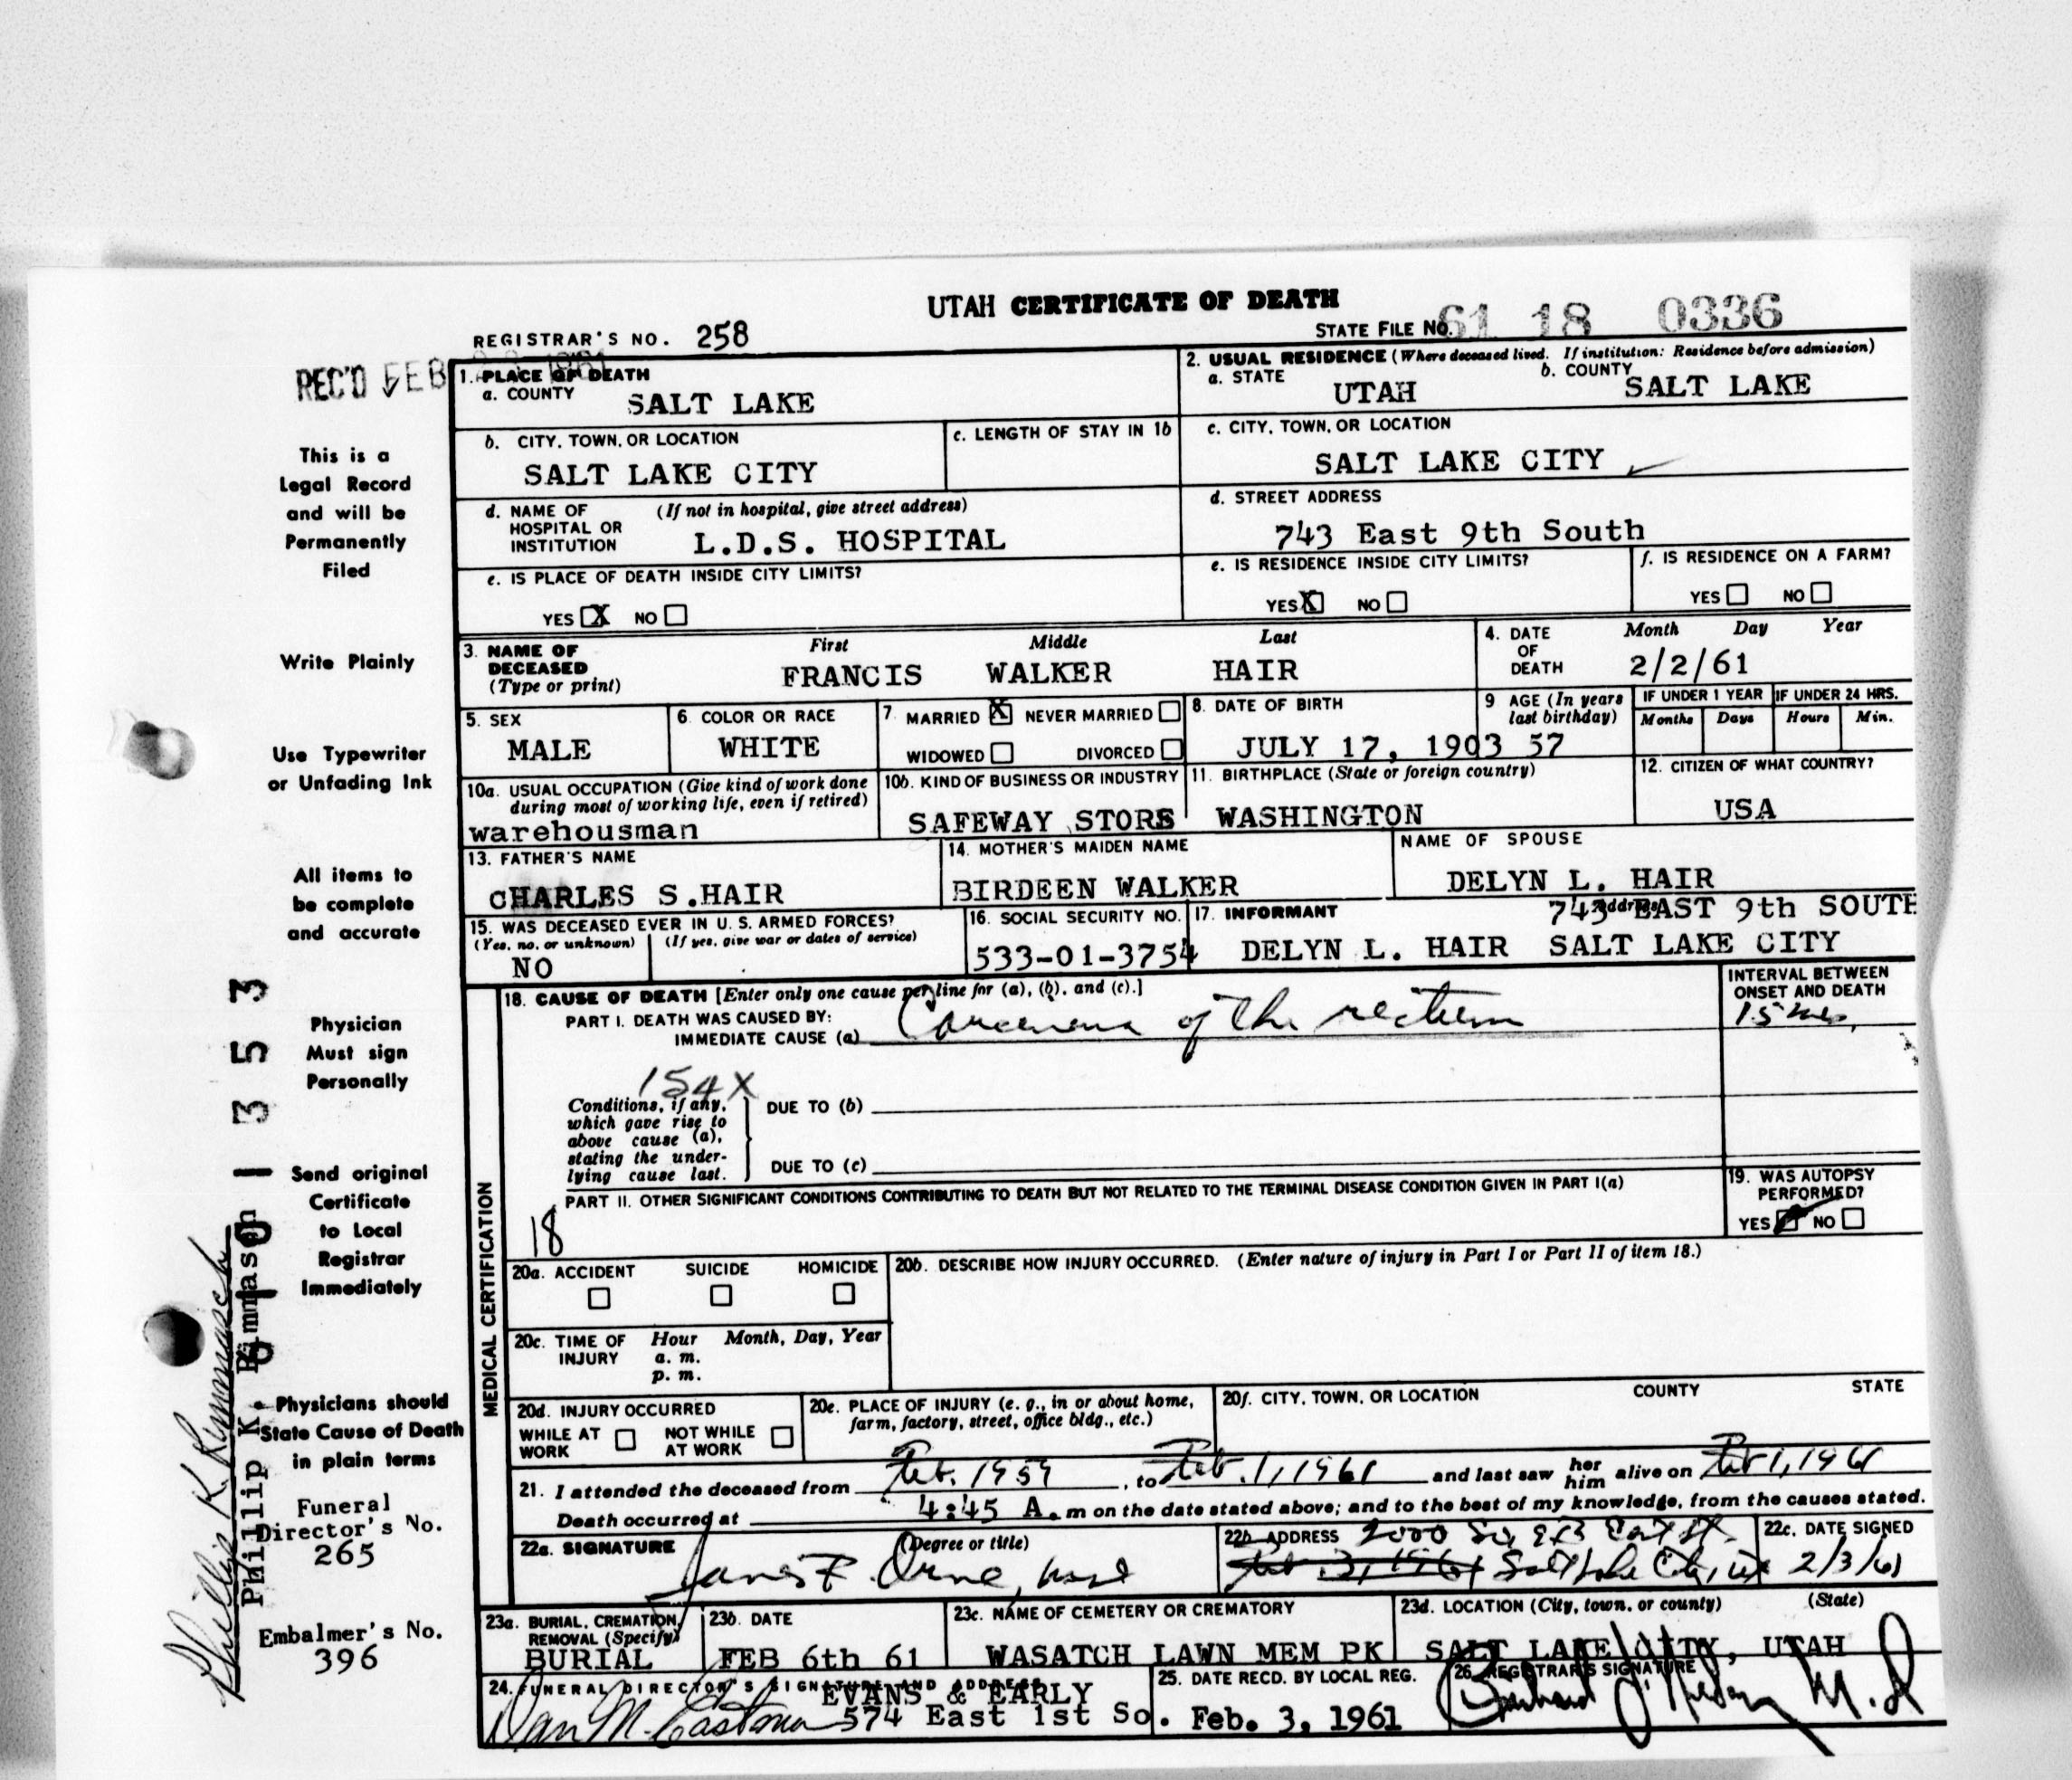 UTAH CERTIFICATE OF DEATH
REGISTRAR'S NO. 258
STATE FILE NO. 61 18 0336
REC'D FEB 1961
1. PLACE OF DEATH
a. COUNTY SALT LAKE
2. USUAL RESIDENCE (Where deceased lived. If institution: Residence before admission)
a. STATE UTAH b. COUNTY SALT LAKE
b. CITY, TOWN, OR LOCATION SALT LAKE CITY
c. LENGTH OF STAY IN 1b
c. CITY, TOWN, OR LOCATION SALT LAKE CITY
d. NAME OF HOSPITAL OR INSTITUTION (If not in hospital, give street address) L.D.S. HOSPITAL
d. STREET ADDRESS 743 East 9th South
e. IS PLACE OF DEATH INSIDE CITY LIMITS?
YES X NO
e. IS RESIDENCE INSIDE CITY LIMITS?
YES X NO
f. IS RESIDENCE ON A FARM?
YES NO
3. NAME OF DECEASED (Type or print)
First Middle Last
FRANCIS WALKER HAIR
4. DATE OF DEATH Month Day Year
2/2/61
5. SEX MALE
6. COLOR OR RACE WHITE
7. MARRIED X NEVER MARRIED
WIDOWED DIVORCED
8. DATE OF BIRTH JULY 17, 1903
9 AGE (In years last birthday) 57
IF UNDER 1 YEAR Months Days
IF UNDER 24 HRS. Hours Min.
10a. USUAL OCCUPATION (Give kind of work done during most of working life, even if retired)
warehousman
10b. KIND OF BUSINESS OR INDUSTRY
SAFEWAY STORS
11. BIRTHPLACE (State or foreign country)
WASHINGTON
12. CITIZEN OF WHAT COUNTRY?
USA
13. FATHER'S NAME
CHARLES S.HAIR
14. MOTHER'S MAIDEN NAME
BIRDEEN WALKER
NAME OF SPOUSE
DELYN L. HAIR
15. WAS DECEASED EVER IN U. S. ARMED FORCES?
(Yes, no, or unknown) (If yes, give war or dates of service)
NO
16. SOCIAL SECURITY NO.
533-01-3754
17. INFORMANT Address
743 EAST 9th SOUTH
DELYN L. HAIR SALT LAKE CITY
MEDICAL CERTIFICATION
18. CAUSE OF DEATH [Enter only one cause per line for (a), (b), and (c).]
PART I. DEATH WAS CAUSED BY:
IMMEDIATE CAUSE (a) Carcinoma of the rectum
INTERVAL BETWEEN ONSET AND DEATH
15 mos.
154X
Conditions, if any, which gave rise to above cause (a), stating the underlying cause last.
DUE TO (b)
DUE TO (c)
PART II. OTHER SIGNIFICANT CONDITIONS CONTRIBUTING TO DEATH BUT NOT RELATED TO THE TERMINAL DISEASE CONDITION GIVEN IN PART I(a)
18
19. WAS AUTOPSY PERFORMED?
YES NO
20a. ACCIDENT SUICIDE HOMICIDE
20b. DESCRIBE HOW INJURY OCCURRED. (Enter nature of injury in Part I or Part II of item 18.)
20c. TIME OF INJURY Hour Month, Day, Year
a. m.
p. m.
20d. INJURY OCCURRED
WHILE AT WORK NOT WHILE AT WORK
20e. PLACE OF INJURY (e. g., in or about home, farm, factory, street, office bldg., etc.)
20f. CITY, TOWN, OR LOCATION COUNTY STATE
21. I attended the deceased from Feb. 1959, to Feb. 1, 1961 and last saw her him alive on Feb 1, 1961
Death occurred at 4:45 A. m on the date stated above; and to the best of my knowledge, from the causes stated.
22a. SIGNATURE (Degree or title)
James F. Orme
22b. ADDRESS 2000 So. 9th East St.
Feb 3, 1961 Salt Lake City, Ut
22c. DATE SIGNED
2/3/61
23a. BURIAL, CREMATION, REMOVAL (Specify)
BURIAL
23b. DATE
FEB 6th 61
23c. NAME OF CEMETERY OR CREMATORY
WASATCH LAWN MEM PK
23d. LOCATION (City, town, or county) (State)
SALT LAKE CITY, UTAH
24. FUNERAL DIRECTOR'S SIGNATURE AND ADDRESS
EVANS & EARLY
Dan M. Eastman 574 East 1st So.
25. DATE RECD. BY LOCAL REG.
Feb. 3, 1961
26. REGISTRAR'S SIGNATURE
M.D
This is a
Legal Record
and will be
Permanently
Filed
Write Plainly
Use Typewriter
or Unfading Ink
All items to
be complete
and accurate
Physician
Must sign
Personally
Send original
Certificate
to Local
Registrar
Immediately
Physicians should
State Cause of Death
in plain terms
Funeral
Director's No.
265
Embalmer's No.
396
Phillip K. Rimmasch
Phillip K. Rimmasch
13353